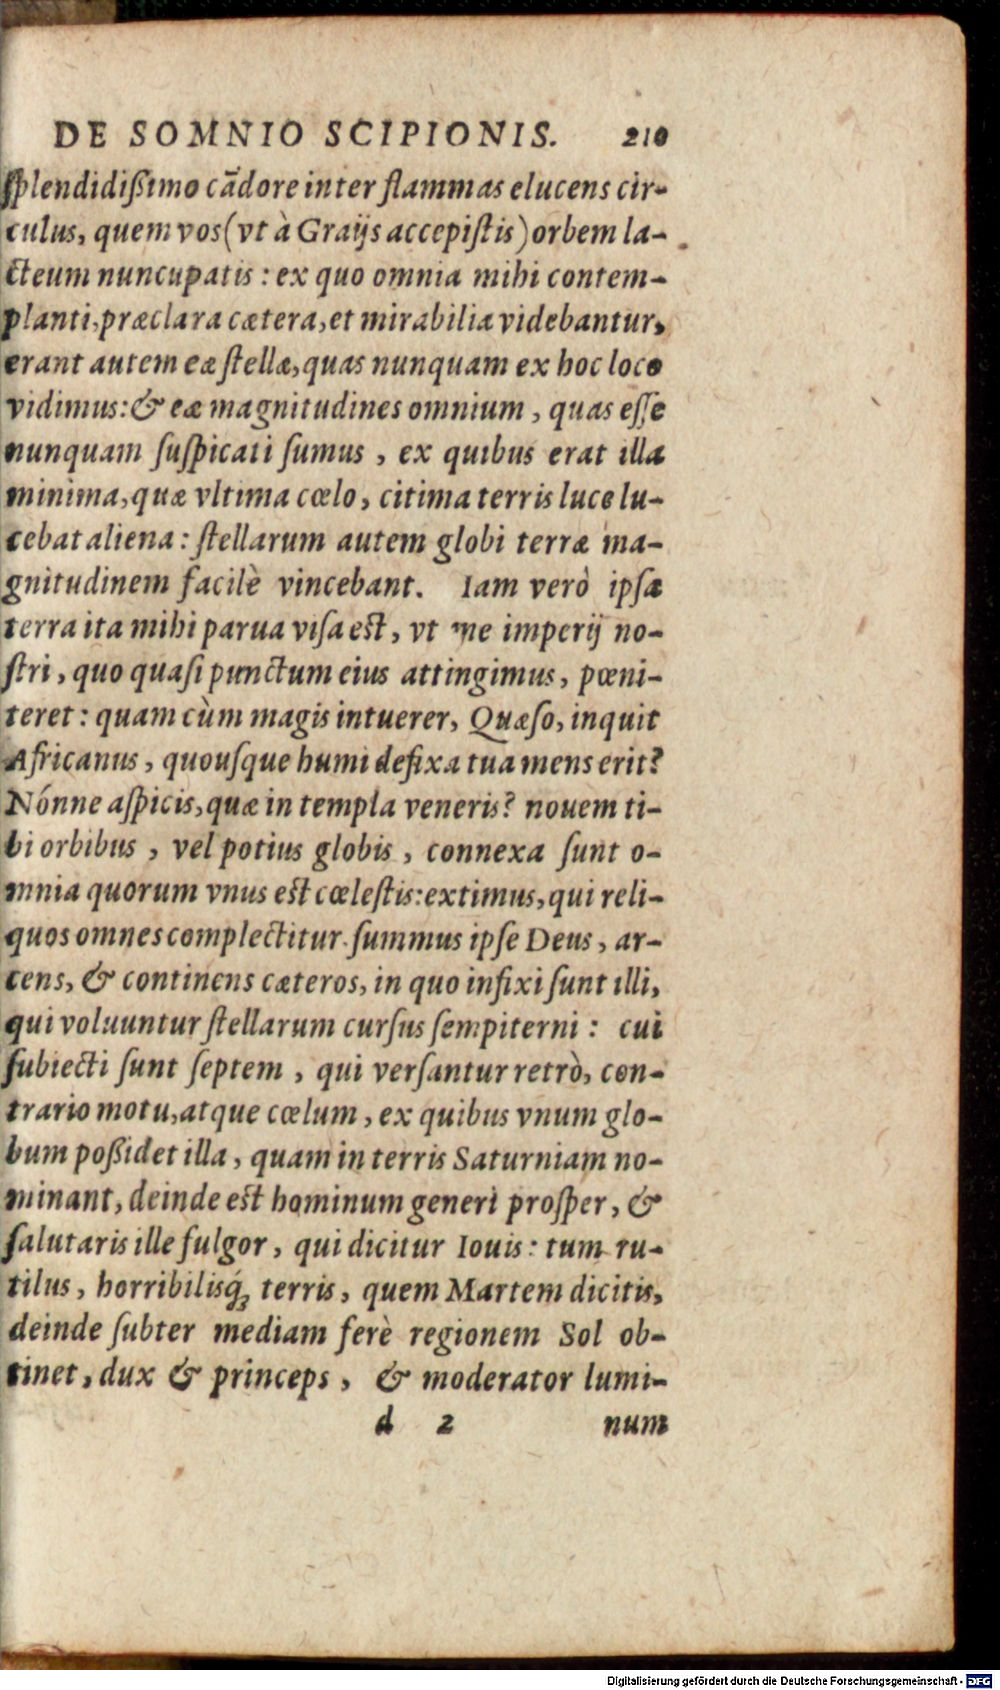 DE SOMNIO SCIPIONIS. 210
ſplendidißimo cādore inter flammas elucens cir-
culus, quem vos (vt à Graijs accepiſtis) orbem la-
cteum nuncupatis : ex quo omnia mihi contem-
planti, præclara cætera, et mirabilia videbantur,
erant autem eæ ſtellæ, quas nunquam ex hoc loco
vidimus: & eæ magnitudines omnium , quas eſſe
nunquam ſuſpicati ſumus , ex quibus erat illa
minima, quæ vltima cœlo, citima terris luce lu-
cebat aliena : ſtellarum autem globi terræ ma-
gnitudinem facilè vincebant. Iam verò ipſa
terra ita mihi parua viſa eſt, vt me imperij no-
ſtri, quo quaſi punctum eius attingimus, pœni-
teret : quam cùm magis intuerer, Quæſo, inquit
Africanus, quouſque humi defixa tua mens erit?
Nónne aſpicis, quæ in templa veneris? nouem ti-
bi orbibus , vel potius globis , connexa ſunt o-
mnia quorum vnus eſt cœleſtis: extimus, qui reli-
quos omnes complectitur. ſummus ipſe Deus, ar-
cens, & continens cæteros, in quo infixi ſunt illi,
qui voluuntur ſtellarum curſus ſempiterni : cui
ſubiecti ſunt ſeptem , qui verſantur retrò, con-
trario motu, atque cœlum , ex quibus vnum glo-
bum poßidet illa , quam in terris Saturniam no-
minant, deinde eſt hominum generi proſper, &
ſalutaris ille fulgor , qui dicitur Iouis : tum ru-
tilus , horribilisq́ꝫ terris, quem Martem dicitis,
deinde ſubter mediam ferè regionem Sol ob-
tinet, dux & princeps , & moderator lumi-
d 2 num
Digitalisierung gefördert durch die Deutsche Forschungsgemeinschaft - DFG